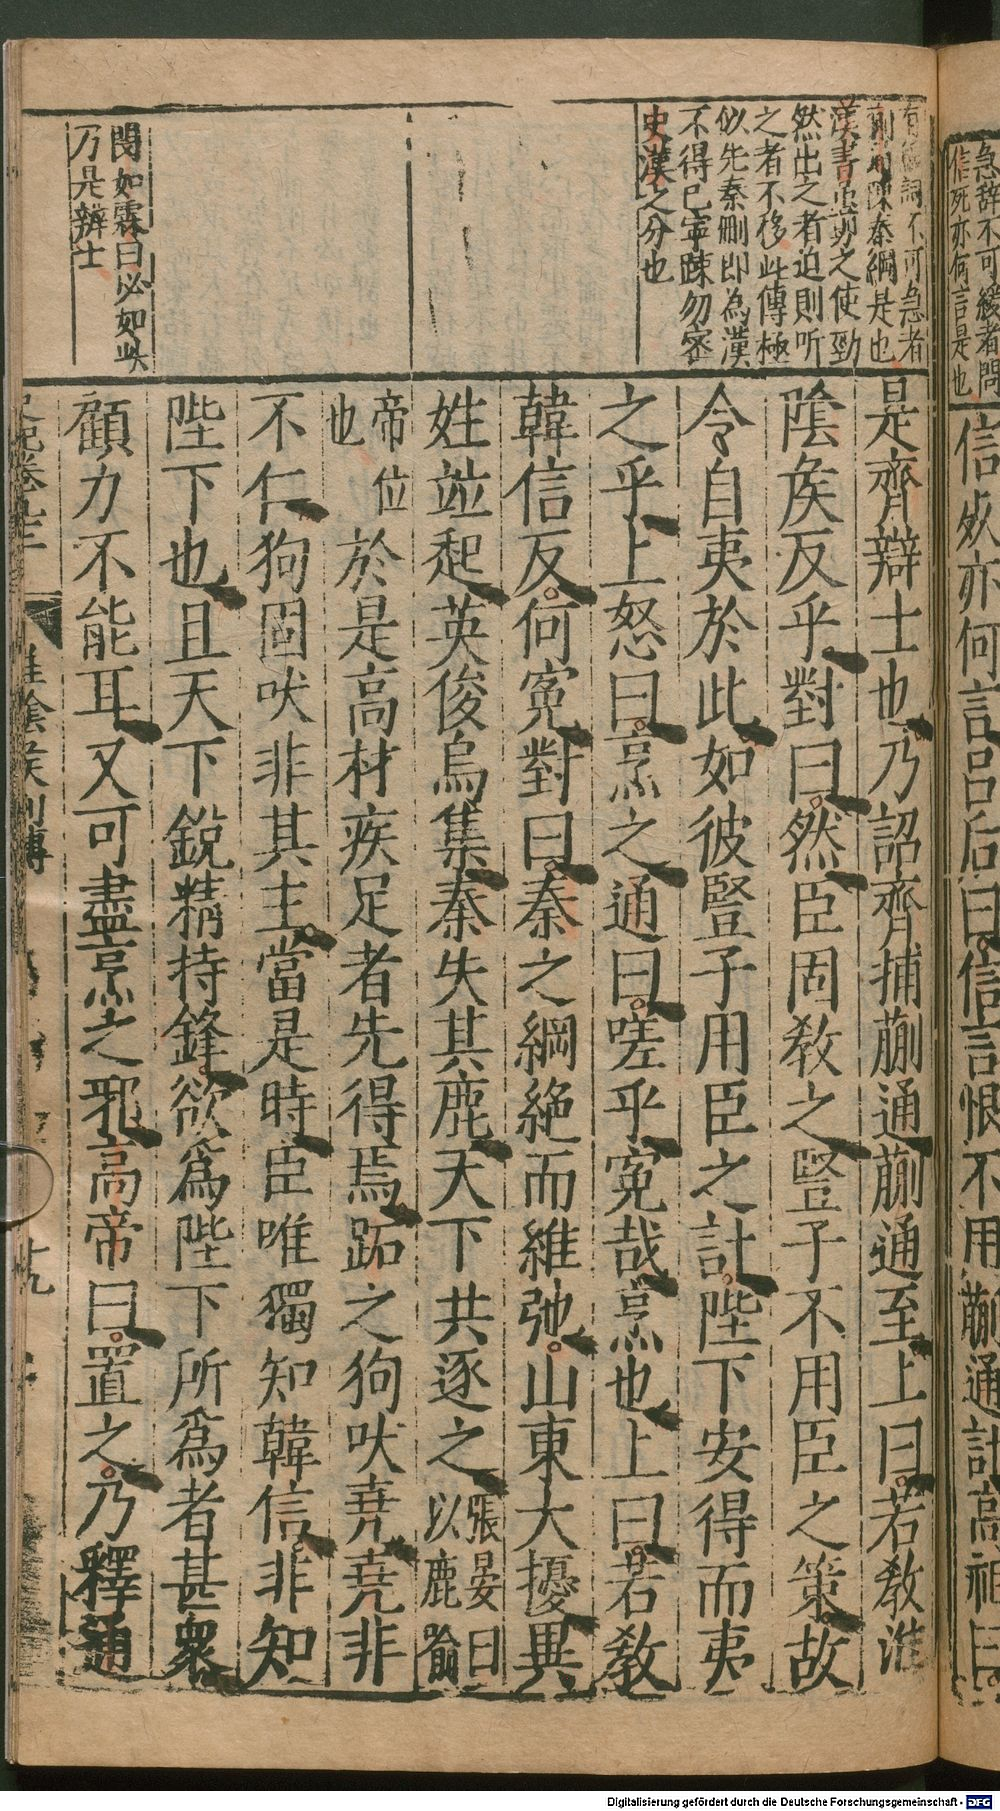 急辞不可緩者問
信死亦何言是也
信死亦何言呂后曰信言恨不用蒯通計高祖曰
詞不可急者
陳秦綱是也
漢書 之使勁
然出之者迫則听
之者不移此傳極
似先秦刪即為漢
不得已寧踈勿密
史漢之分也
閔如霖曰必如此
乃是辨士
是齊辯士也乃詔齊捕蒯通蒯通至上曰若敎淮
陰矦反乎對曰然臣固敎之豎子不用臣之策故
令自夷於此如彼豎子用臣之計陛下安得而夷
之乎上怒曰烹之通曰嗟乎寃哉烹也上曰若敎
韓信反何寃對曰秦之綱絶而維弛山東大擾異
姓竝起英俊烏集秦失其鹿天下共逐之張晏曰以鹿喻
帝位也於是高材疾足者先得焉跖之狗吠堯堯非
不仁狗固吠非其主當是時臣唯獨知韓信非知
陛下也且天下鋭精持鋒欲爲陛下所爲者甚衆
顧力不能耳又可盡烹之邪高帝曰置之乃釋通
淮陰矦列傳
Digitalisierung gefördert durch die Deutsche Forschungsgemeinschaft - DFG